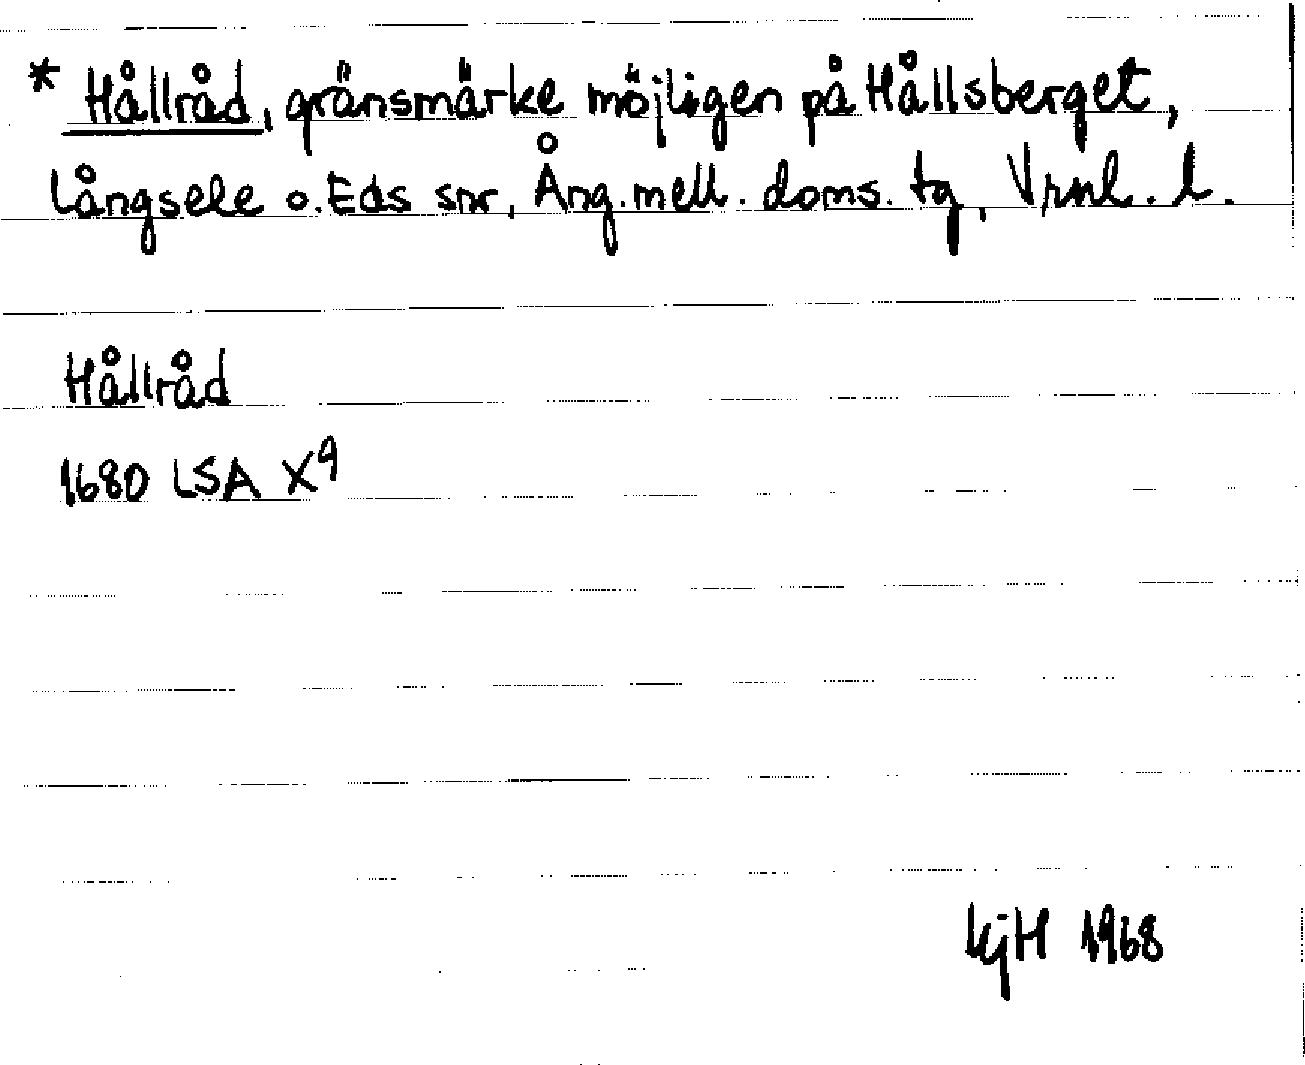 * Hållråd, gränsmärke möjligen på Hållsberget,
Långsele o. Eds snr, Ång. mell. doms. tg, Vrnl. l.
Hållråd
1680 LSA X⁹
kjH 1968